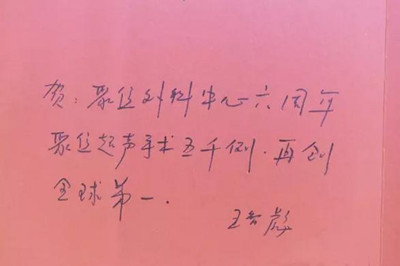 贺：聚焦外科中心六周年
聚焦超声手术五千例．再创
全球第一．
王智彪